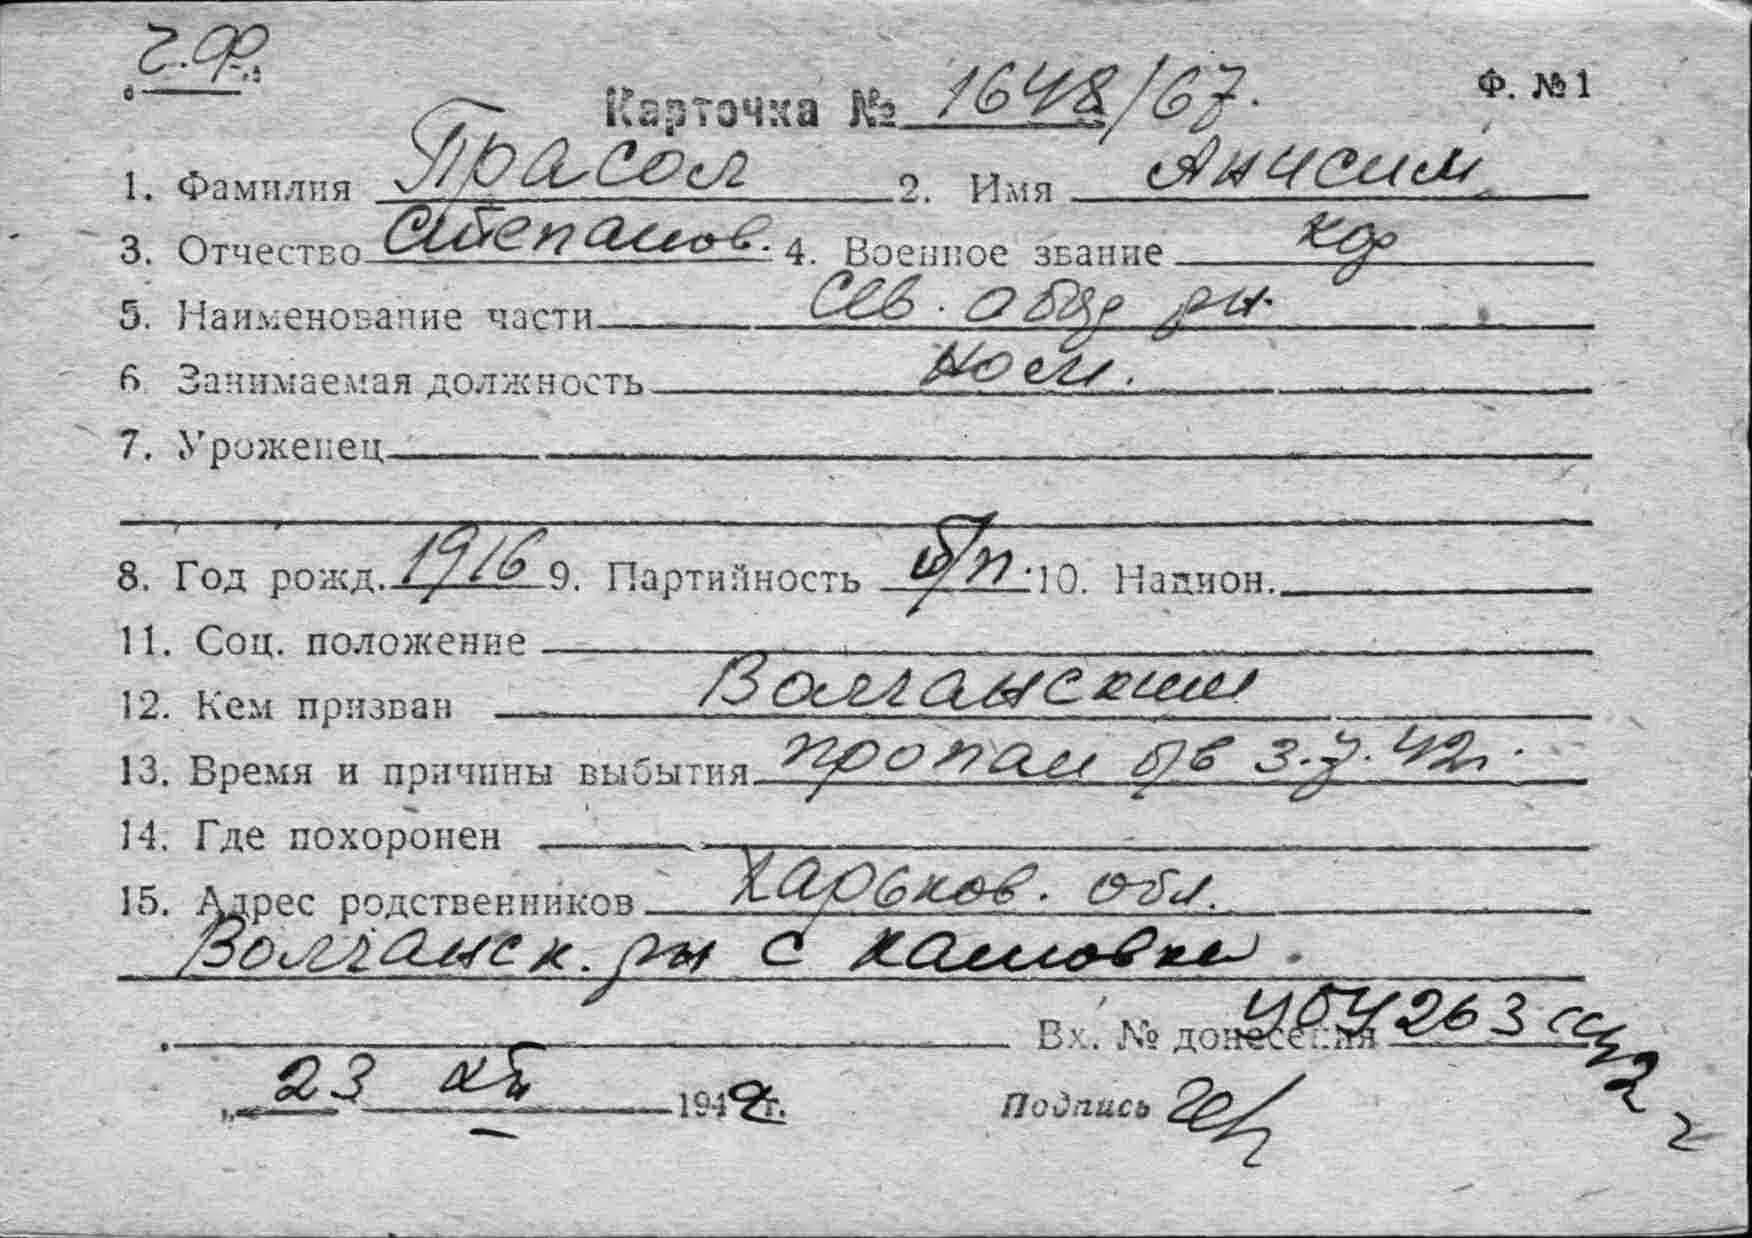 ч.ф.
Карточка № 1648/67. Ф. № 1
1. Фамилия Прасол 2. Имя Анисим
3. Отчество Степанов. 4. Военное звание кр
5. Наименование части Сев. обор рн
6 Занимаемая должность ком.
7. Уроженец
8. Год рожд. 1916 9. Партийность б/п. 10. Национ.
11. Соц. положение
12. Кем призван Волчанским
13. Время и причины выбытия пропал б/в 3.7.42г.
14. Где похоронен
15. Адрес родственников Харьков. обл.
Волчанск. рн с
Вх. № донесения 263
„ 23 1942 г. Подпись